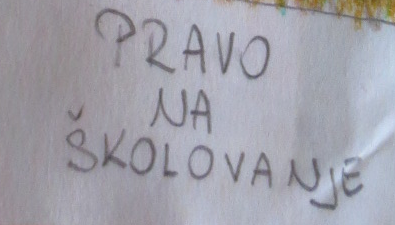 PRAVO
NA
ŠKOLOVANjE